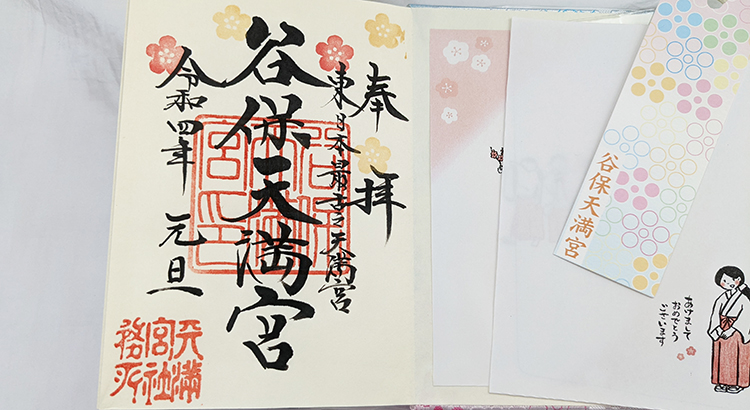 奉拝
東日本最古之天満宮
谷保天満宮
令和四年 元旦
天満
宮社
務所
谷保天満宮
あけまして
おめでとう
ございます